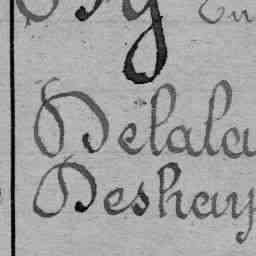 Delala
Deshay